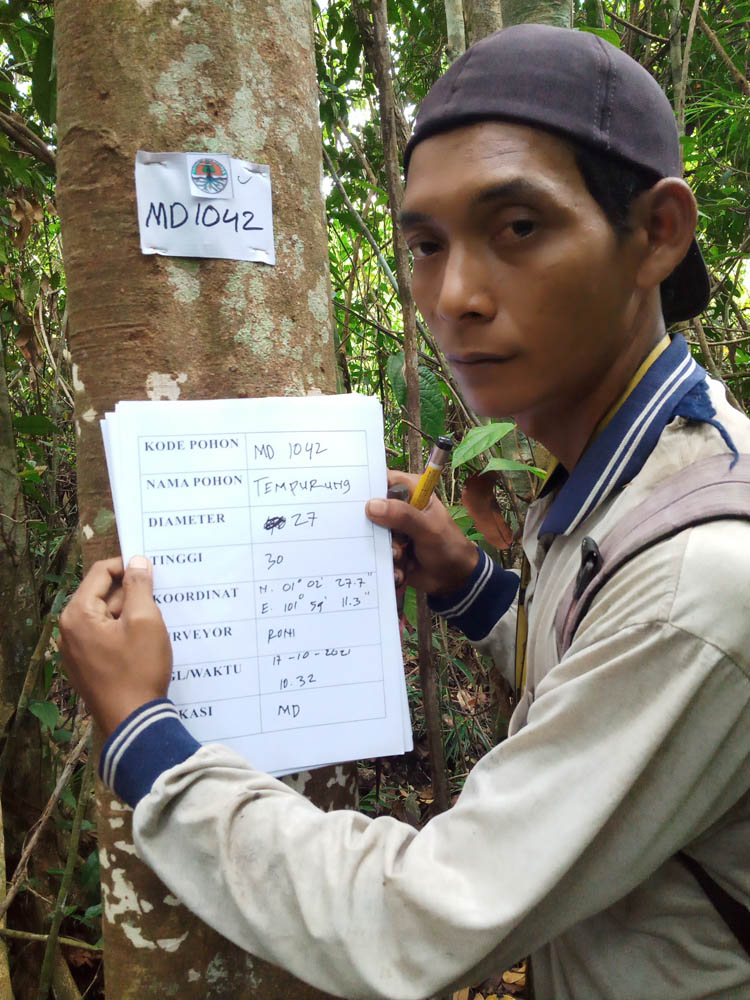 MD 1042
KODE POHON MD 1042
NAMA POHON TEMPURUNG
DIAMETER 27
TINGGI 30
KOORDINAT N. 01° 02' 27.7"
E. 101° 59' 11.3"
RVEYOR RONI
GL/WAKTU 17-10-2021
10.32
KASI MD